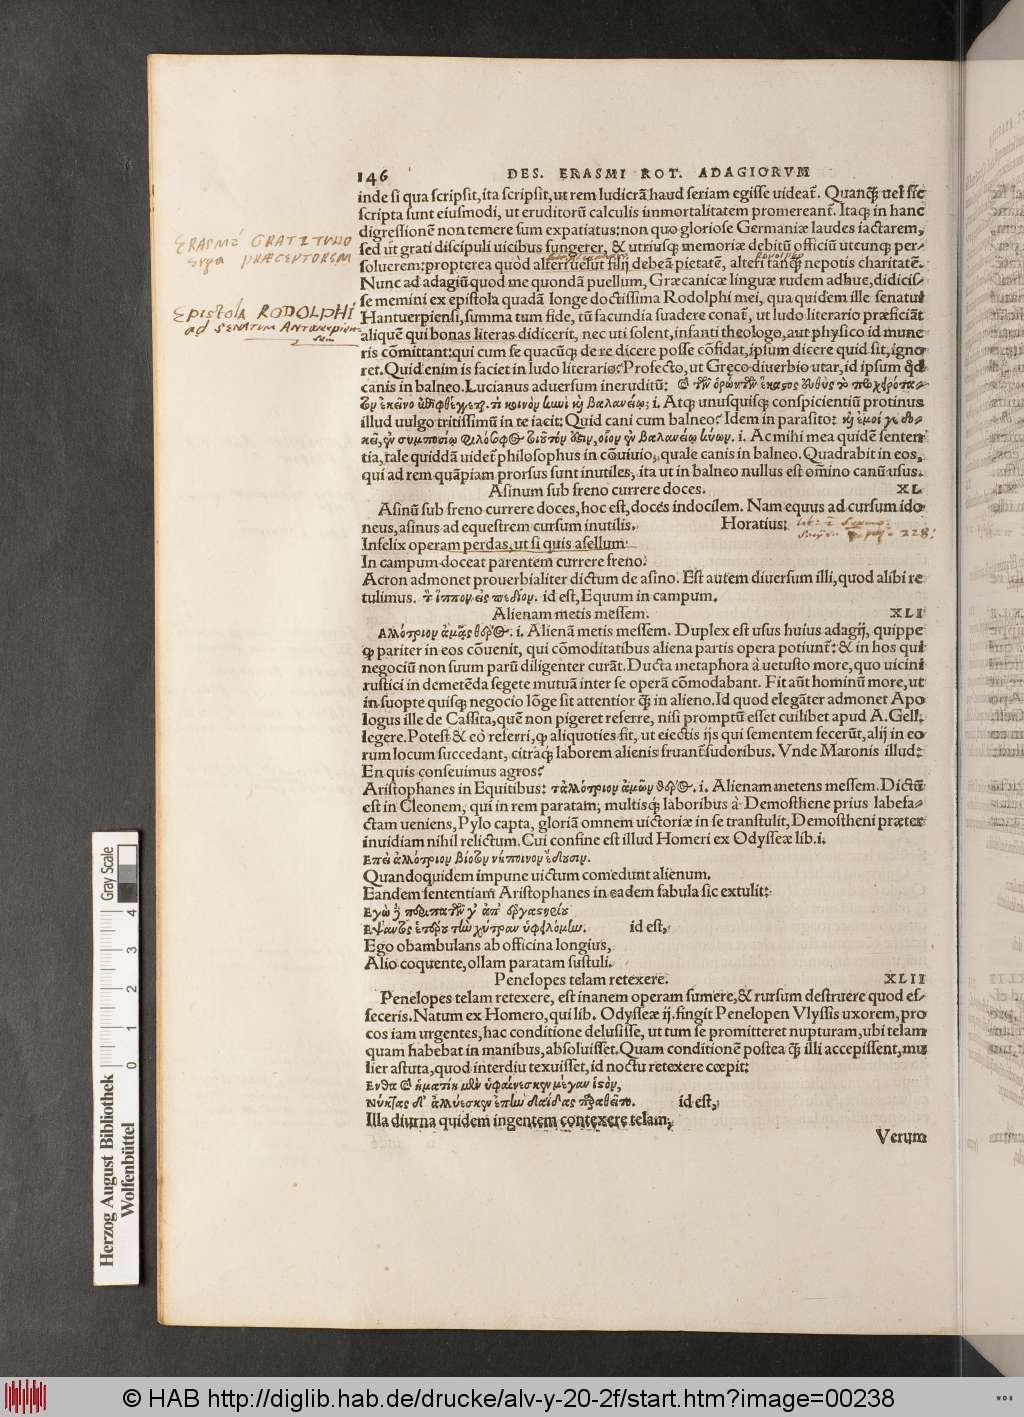 146 DES. ERASMI ROT. ADAGIORVM
inde si qua scripsit, ita scripsit, ut rem ludicrã haud seriam egisse uideat̃. Quanq̃ꝫ uel sic
scripta sunt eiusmodi, ut eruditorũ calculis immortalitatem promereant̃. Itaqꝫ in hanc
digressionẽ non temere sum expatiatus: non quo gloriose Germaniæ laudes iactarem,
sed ut grati discipuli uicibus fungerer, & utriusqꝫ memoriæ debitũ officiũ utcunqꝫ per/
soluerem: propterea quòd alteri uelut filij debeã pietatẽ, alteri tanq̃ꝫ nepotis charitatẽ.
ERASMI GRATITUDO
erga PRÆCEPTOREM
Nunc ad adagiũ quod me quondã puellum, Græcanicæ linguæ rudem adhuc, didicis/
se memini ex epistola quadã longe doctissima Rodolphi mei, qua quidem ille senatui
Hantuerpiensi, summa tum fide, tũ facundia suadere conat̃, ut ludo literario præficiãt
Epistola RODOLPHI
ad SENATUM Antwerpien-
sem
aliquẽ qui bonas literas didicerit, nec uti solent, infanti theologo, aut physico id mune
ris cõmittant: qui cum se quacũqꝫ de re dicere posse cõfidat, ipsum dicere quid sit, igno
ret. Quid enim is faciet in ludo literario? Profecto, ut Greco diuerbio utar, id ipsum qd̃
canis in balneo. Lucianus aduersum ineruditũ: Ὁ τῶν ὁρώντων ἕκαστος εὐθὺς τὸ πρόχειρότα/
τον ἐκεῖνο ἐπιφθέγγεται. τί κοινὸν κυνὶ καὶ βαλανείῳ; i. Atqꝫ unusquisqꝫ conspicientiũ protinus
illud uulgo tritissimũ in te iacit: Quid cani cum balneo? Idem in parasito: καὶ ἐμοί γε δο/
κεῖ, ἐν συμποσίῳ φιλόσοφος τοιοῦτόν ἐστιν, οἷον ἐν βαλανείῳ κύων. i. Ac mihi mea quidẽ senten
tia, tale quiddã uidet̃ philosophus in cõuiuio, quale canis in balneo. Quadrabit in eos,
qui ad rem quãpiam prorsus sunt inutiles, ita ut in balneo nullus est om̃ino canũ usus.
Asinum sub freno currere doces. XL
Asinũ sub freno currere doces, hoc est, doces indocilem. Nam equus ad cursum ido
neus, asinus ad equestrem cursum inutilis. Horatius:
228.
Infelix operam perdas, ut si quis asellum
In campum doceat parentem currere freno.
Acron admonet prouerbialiter dictum de asino. Est autem diuersum illi, quod alibi re
tulimus. τὸν ἵππον εἰς πεδίον. id est, Equum in campum.
Alienam metis messem. XLI
Ἀλλότριον ἀμᾷς θέρος. i. Alienã metis messem. Duplex est usus huius adagij, quippe
qꝫ pariter in eos cõuenit, qui cõmoditatibus aliena partis opera potiunt̃: & in hos qui
negociũ non suum parũ diligenter curãt. Ducta metaphora à uetusto more, quo uicini
rustici in demetẽda segete mutuã inter se operã cõmodabant. Fit aũt hominũ more, ut
in suopte quisqꝫ negocio lõge sit attentior q̃ꝫ in alieno. Id quod elegãter admonet Apo
logus ille de Cassita, quẽ non pigeret referre, nisi promptũ esset cuilibet apud A. Gell.
legere. Potest & eò referri, qꝫ aliquoties fit, ut eiectis ijs qui sementem fecerũt, alij in eo
rum locum succedant, citraqꝫ laborem alienis fruant̃ sudoribus. Vnde Maronis illud:
En quis conseuimus agros?
Aristophanes in Equitibus: τἀλλότριον ἀμῶν θέρος. i. Alienam metens messem. Dictũ
est in Cleonem, qui in rem paratam, multisqꝫ laboribus à Demosthene prius labefa/
ctam ueniens, Pylo capta, gloriã omnem uictoriæ in se transtulit, Demostheni præter
inuidiam nihil relictum. Cui confine est illud Homeri ex Odysseæ lib. i.
Ἐπεὶ ἀλλότριον βίοτον νήποινον ἔδουσιν.
Quandoquidem impune uictum comedunt alienum.
Eandem sententiam Aristophanes in eadem fabula sic extulit:
Ἐγὼ δὲ περιπατῶν γ' ἀπ' ἐργαστηρίου
Ἕψοντος ἑτέρου τὴν χύτραν ὑφειλόμην. id est,
Ego obambulans ab officina longius,
Alio coquente, ollam paratam sustuli.
Penelopes telam retexere. XLII
Penelopes telam retexere, est inanem operam sumere, & rursum destruere quod ef/
feceris. Natum ex Homero, qui lib. Odysseæ ij. fingit Penelopen Vlyssis uxorem, pro
cos iam urgentes, hac conditione delusisse, ut tum se promitteret nupturam, ubi telam
quam habebat in manibus, absoluisset. Quam conditionẽ postea q̃ꝫ illi accepissent, mu
lier astuta, quod interdiu texuisset, id noctu retexere cœpit:
Ἔνθα καὶ ἠματίη μὲν ὑφαίνεσκεν μέγαν ἱστόν,
Νύκτας δ' ἀλλύεσκεν ἐπὴν δαΐδας παραθεῖτο. id est,
Illa diurna quidem ingentem contexere telam,
Verum
Herzog August Bibliothek
Wolfenbüttel
0 1 2 3 4
Gray Scale
© HAB http://diglib.hab.de/drucke/alv-y-20-2f/start.htm?image=00238